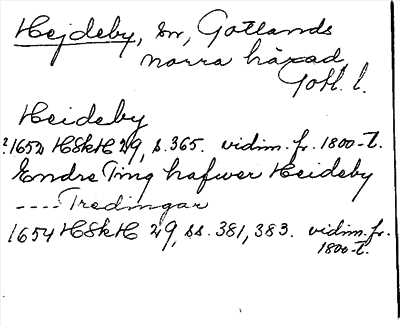 Hejdeby, sn, Gotlands
norra härad,
Gotl. l.
Heideby
?1652 HSkH 29, s. 365. vidim. fr. 1800-t.
Endre Ting hafwer Heideby
---- Tredingar
1654 HSkH 29, ss. 381, 383. vidim. fr.
1800-t.